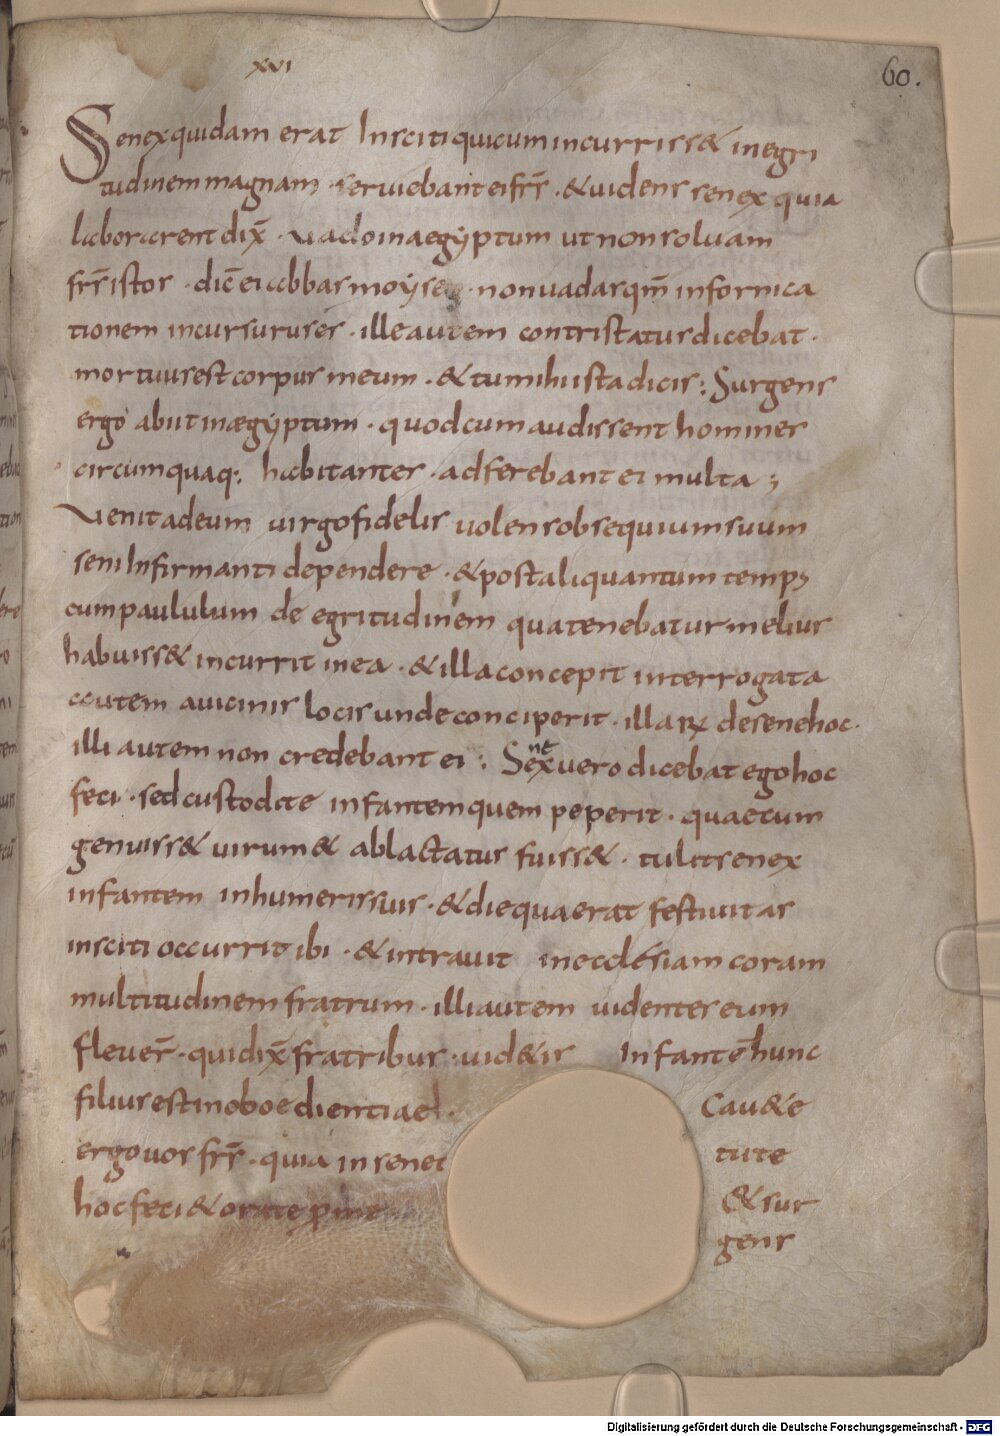 xvi
60.
Senex quidam erat Insciti qui cum incurriss& in egri
tudinem magnam · serviebant ei fr̄s · & videns senex quia
laborarent dix̄ · Vado in aegẏptum ut non solvam
fr̄s istos · dic̄ ei abbas moẏses · non vadas qm̄ in fornica
tionem incursurus es · ille autem contristatus dicebat ·
mortuus est corpus meum · & tu mihi ista dicis : Surgens
ergo abiit in ægẏptum · quod cum audissent homines
circumquaq: habitantes · adferebant ei multa ;
Venit ad eum virgo fidelis volens obsequium suum
seni Infirmanti dependere · & post aliquantum temp;
cum paululum de egritudinem qua tenebatur melius
habuiss& incurrit in ea · & illa concepit interrogata
autem a vicinis locis unde conciperit · illa R̄x de sene hoc ·
illi autem non credebant ei : Senex vero dicebat ego hoc
feci · sed custodite infantem quem peperit · quae cum
genuiss& virum & ablactatus fuiss& · tulit senex
infantem in humeris suis · & die qua erat festivitas
insciti occurrit ibi · & intravit in ecclesiam coram
multitudinem fratrum · illi autem videntes eum
flever̄ · qui dix̄ fratribus · vid&is Infantē hunc
filius est inoboedientiae · Cau&e
ergo vos fr̄s · quia in senec tute
hoc feci & orate p me & sur
gens
Digitalisierung gefördert durch die Deutsche Forschungsgemeinschaft - DFG